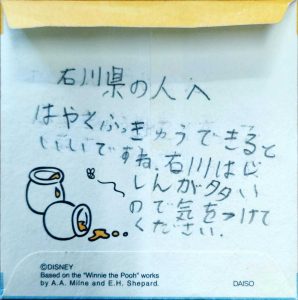 石川県の人へ
はやくふっきゅうできると
いいですね。石川はじ
しんが多い
ので気をつけて
ください。
©DISNEY
Based on the "Winnie the Pooh" works
by A.A. Milne and E.H. Shepard.
DAISO